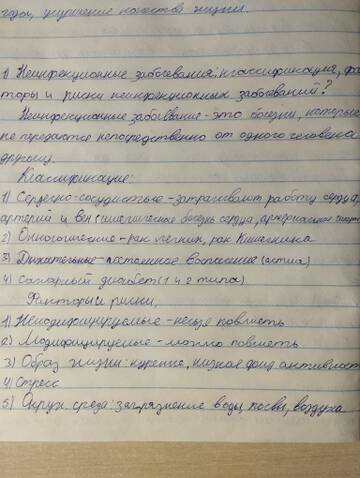 улучшение качества жизни.
1) Неинфекционные заболевания: классификация, фак
торы и риски неинфекционных заболеваний?
Неинфекционные заболевание - это болезни, которые
не передаются непосредственно от одного человека
другому.
Классификация:
1) Сердечно-сосудистые - затрагивают работу сердца,
артерий и вен (ишемическая болезнь сердца, артериальная
2) Онкологические - рак легких, рак кишечника
3) Дыхательные - постоянное воспаление (астма)
4) сахарный диабет (1 и 2 типа)
Факторы и риски.
1) Немодифицируемые - нельзя повлиять
2) Модифицируемые - можно повлиять
3) Образ жизни: курение, низкая физ активность
4) Стресс
5) Окруж. среда: загрязнение воды, почвы, воздуха